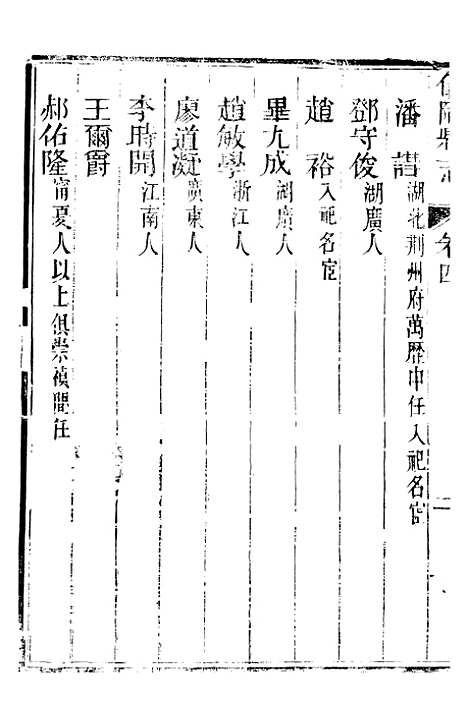 潘譜湖北荆州府萬歴中任入祀名宦
鄧守俊湖廣人
趙裕入祀名宦
畢九成湖廣人
趙敏學浙江人
廖道凝廣東人
李時開江南人
王爾爵
郝佑隆甯夏人以上俱崇禎間任
卷四
二